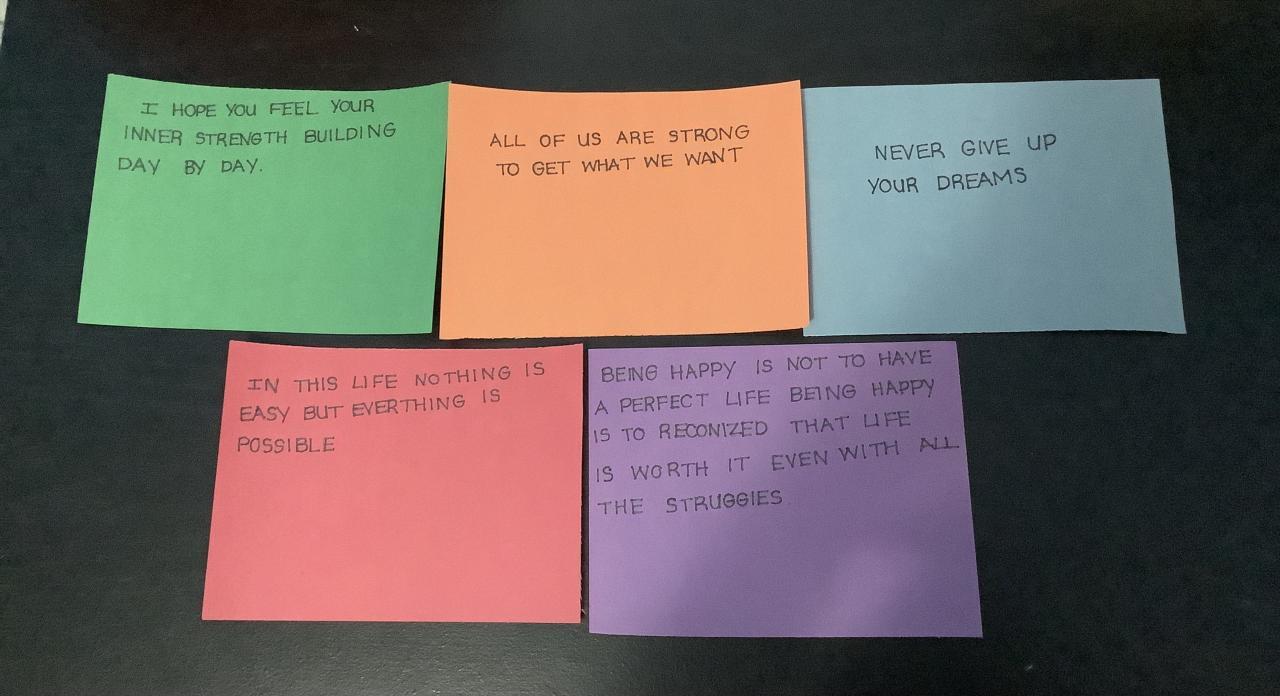 I HOPE YOU FEEL YOUR
INNER STRENGTH BUILDING
DAY BY DAY.
ALL OF US ARE STRONG
TO GET WHAT WE WANT
NEVER GIVE UP
YOUR DREAMS
IN THIS LIFE NOTHING IS
EASY BUT EVERTHING IS
POSSIBLE
BEING HAPPY IS NOT TO HAVE
A PERFECT LIFE BEING HAPPY
IS TO RECONIZED THAT LIFE
IS WORTH IT EVEN WITH ALL
THE STRUGGIES